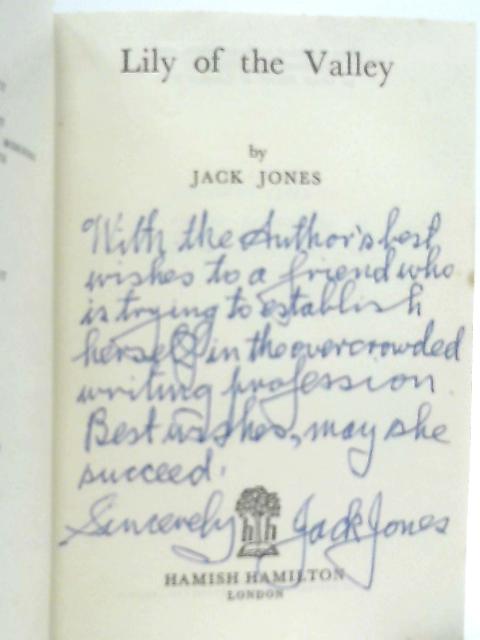 Lily of the Valley
by
JACK JONES
With the Author's best
wishes to a friend who
is trying to establish
herself in the overcrowded
writing profession
Best wishes, may she
succeed.
Sincerely Jack Jones
HH
HAMISH HAMILTON
LONDON